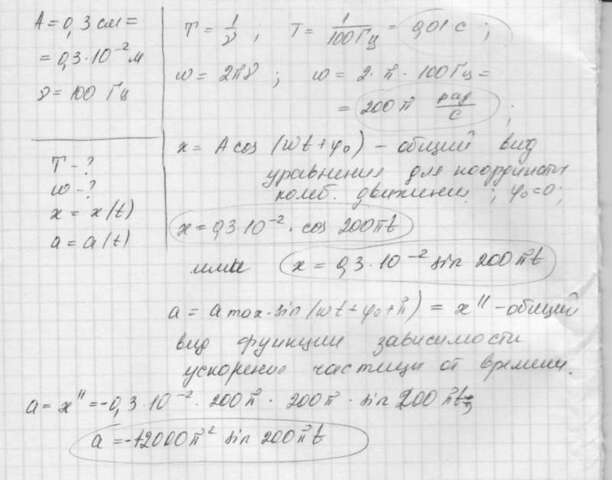 A = 0,3 см =
= 0,3·10⁻² м
ν = 100 Гц
T - ?
ω - ?
x = x(t)
a = a(t)
T = 1/ν , T = 1/100 Гц = 0,01 с ;
ω = 2πν ; ω = 2·π·100 Гц =
= 200π рад/с ;
x = A cos (ωt + φ₀) – общий вид
уравнения для координаты
колеб. движения ; φ₀ = 0 ;
x = 0,3·10⁻² · cos 200πt
или x = 0,3·10⁻² sin 200πt
a = a max · sin (ωt + φ₀ + π) = x'' – общий
вид функции зависимости
ускорение частицы от времени.
a = x'' = -0,3·10⁻² · 200π · 200π · sin 200πt =
a = -12000π² sin 200πt